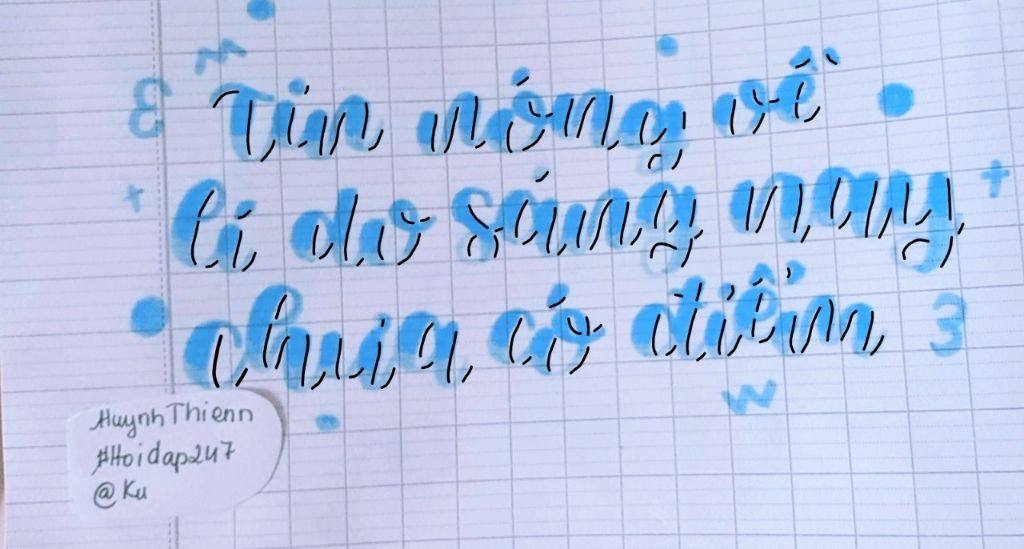 Tin nóng về
lí do sáng nay
chưa có điểm
HuynhThienn
#Hoidap247
@Ku